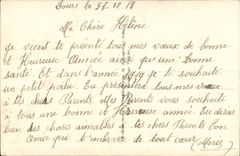 Tours le 31.12.18
Ma Chère Hélène
je viens te présenté tous mes vœux de bonne
et Heureuse Année ainsi que une bonne
santé. Et dans l'année 1919 je te souhaite
un petit poilu. Tu présentera tous mes vœux
à tes chers Parents. Mes Parents vous souhaite
à tous une bonne et Heureuse année. Tu diras
bien des choses aimables à tes chers Parents Ton
Amie qui t'embrasse de tout cœur